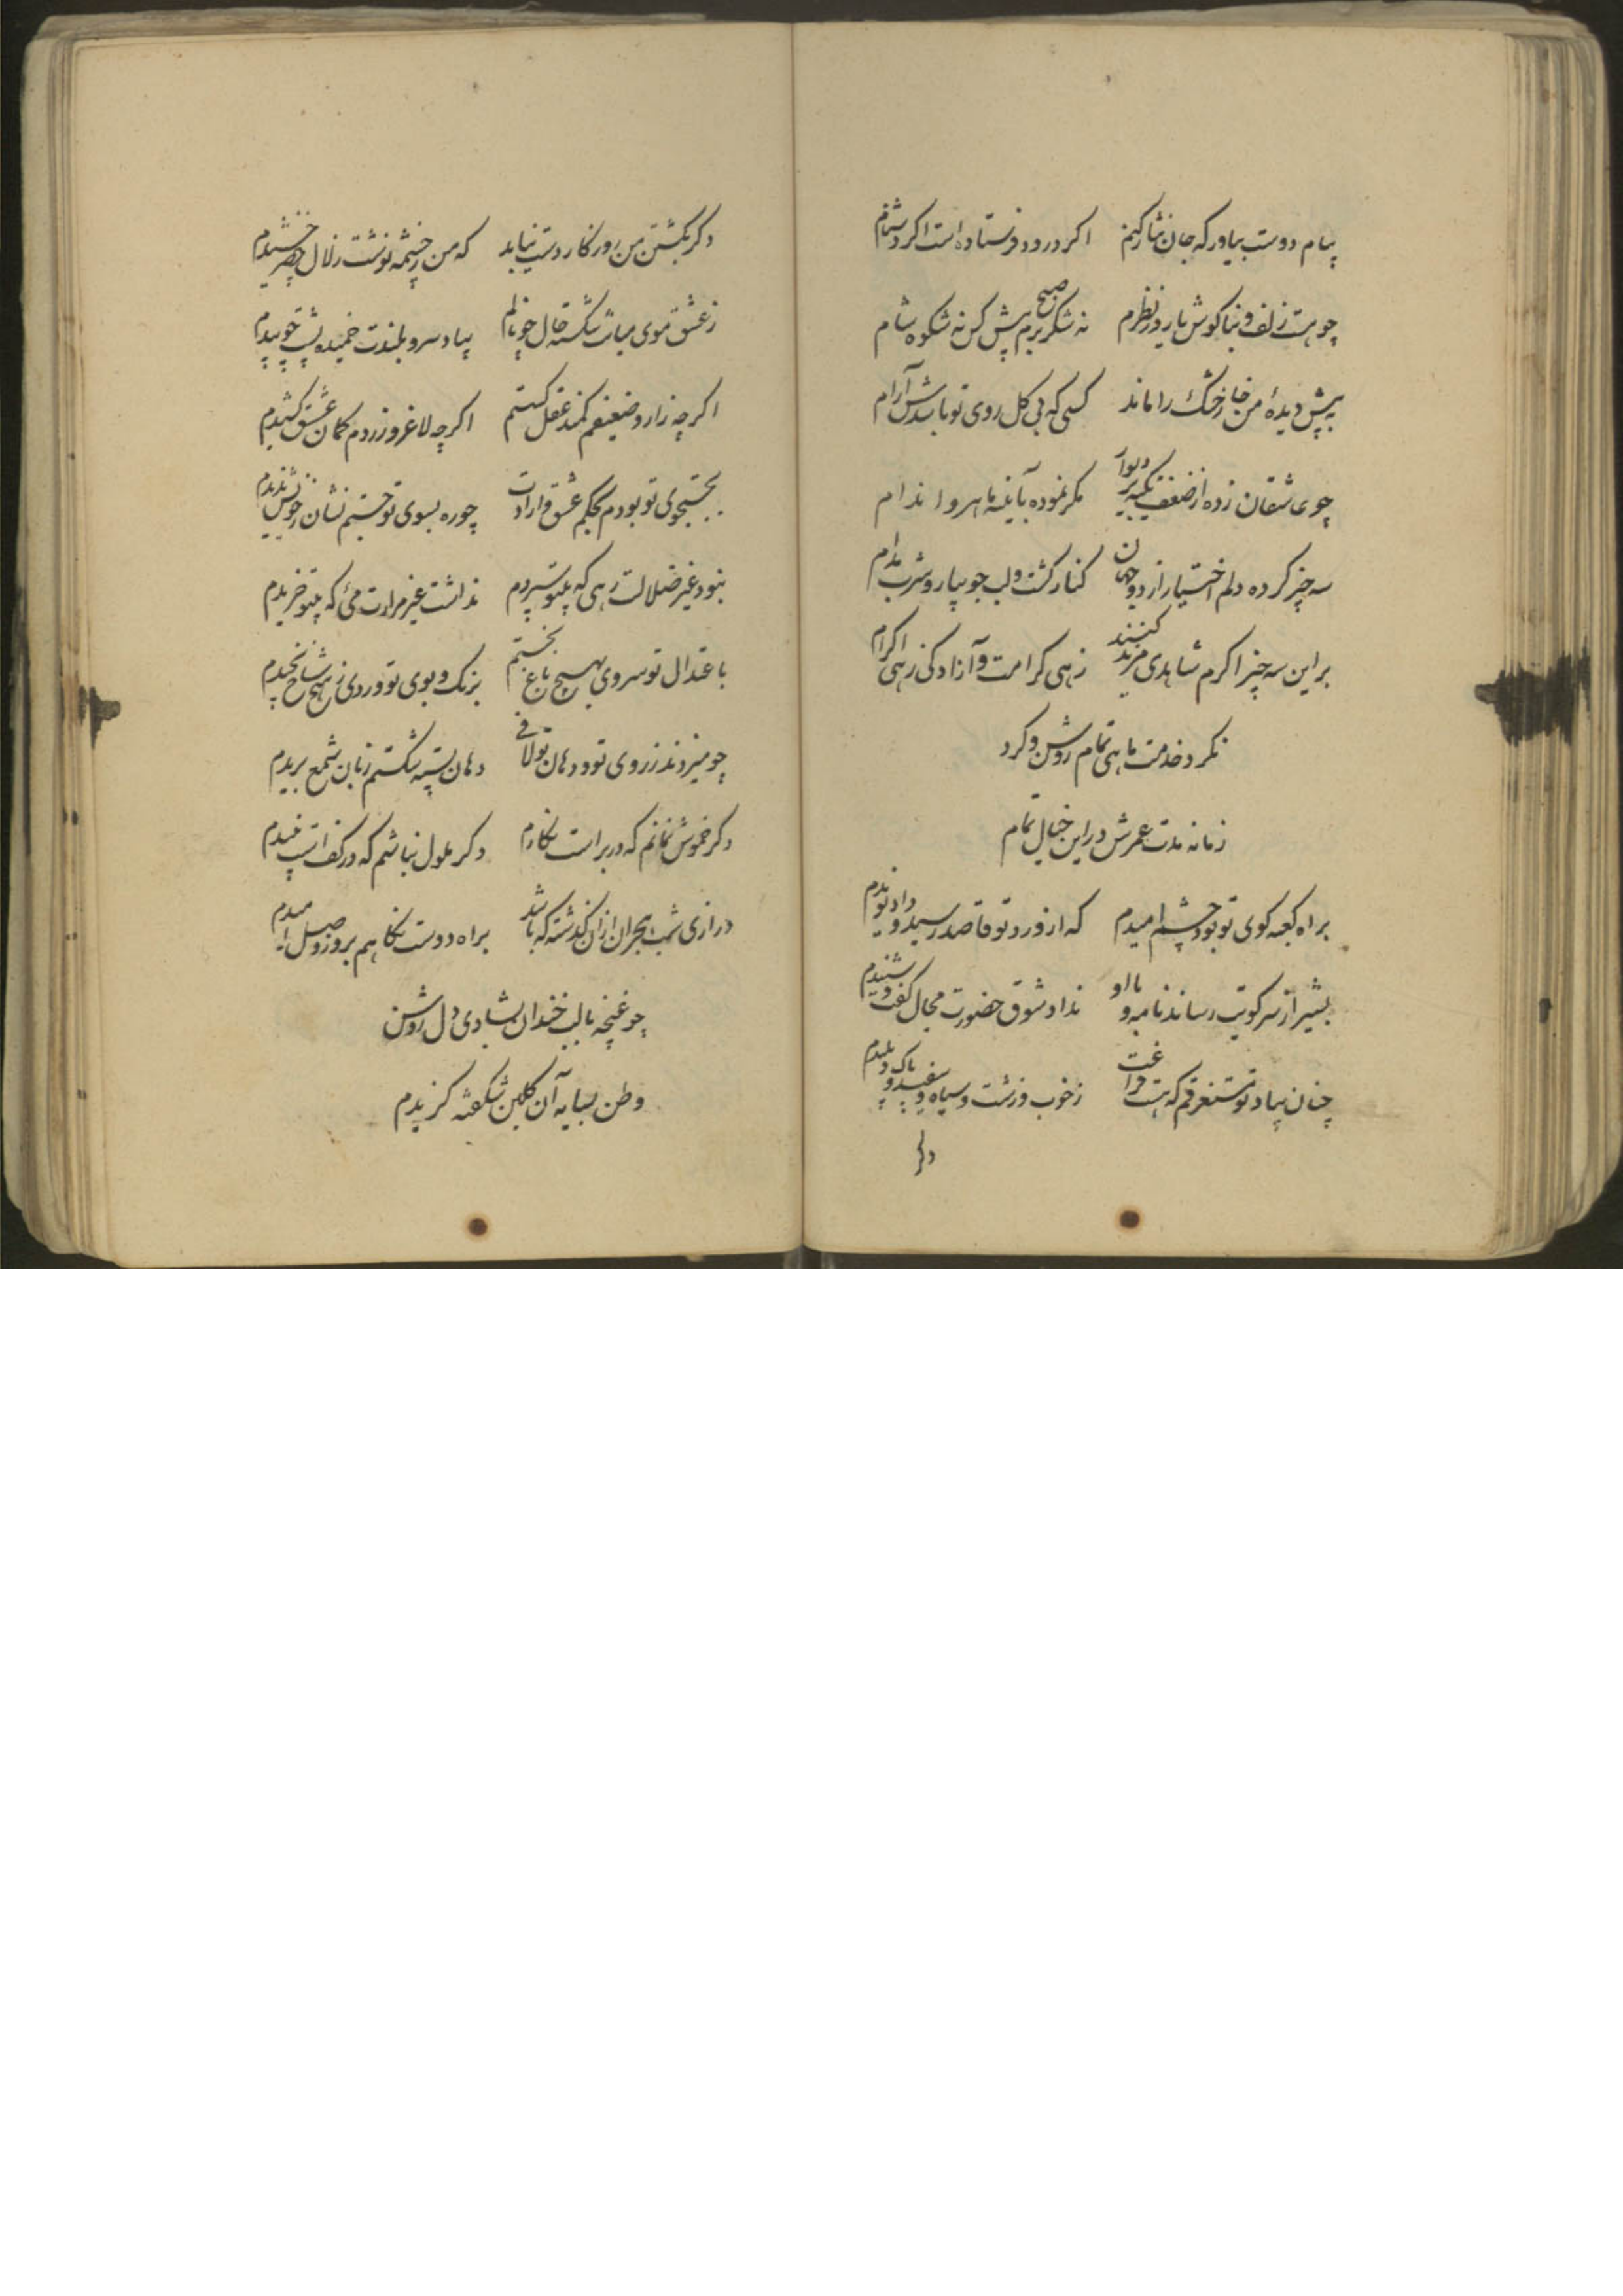 پیام دوست بیاور که جان نثار کنم اکر درود فرستاده است اکر دشنام
چو هست زلف و بناکوش یار در نظرم نه شکر برم صبح پیش کس نه شکوه شام
به پیش دیدهٔ من خار خشک را ماند کسی که بی کل روی تو باشدش آرام
چو عاشقان زده از ضعف تکیه بر دیوار مکر نموده بآینه ماهرو اندام
سه چیز کرده دلم اختیار از دو جهان کنار کشت و لب جویبار و شرب مدام
بر این سه چیز اکرم شاهدی مزید کنند زهی کرامت و آزادکی زهی اکرام
نکرد خدمت ماهی تمام روشن و کرد
زمانه مدت عمرش در این خیال تمام
براه کعبه کوی تو بود چشم امیدم که از ورود تو قاصد رسید و داد نویدم
بشیر از سر کویت رساند نامه و با او نداد شوق حضورت مجال کفت و شنیدم
چنان بیاد تو مستغرقم که هست فراغت ز خوب و زشت و سیاه و سفید و پاک و پلیدم
دکر
دکر بکشتن من روزکار دست نیابد که من ز چشمه نوشت زلال خضر چشیدم
ز عشق موی میانت شکسته حال چو نالم بیاد سرو بلندت خمیده پشت چو بیدم
اکر چه زار و ضعیفم کمند عقل کسستم اکر چه لاغر و زردم کمان عشق کشیدم
بجستجوی تو بودم بحکم عشق و ارادت چو ره بسوی تو جستم نشان ز خویش ندیدم
نبود غیر ضلالت رهی که بیتو سپردم نداشت غیر مرارت می که بیتو خریدم
باعتدال تو سروی بهیچ باغ نجستم برنک و بوی تو وردی ز هیچ شاخ نچیدم
چو میزدند ز روی تو و دهان تو لافی دهان پسته شکستم زبان شمع بریدم
دکر خموش نمانم که در بر است نکارم دکر ملول نباشم که در کف است نبیدم
درازی شب هجران از آن کذشته که باشد براه دوست نکاهم بروز وصل امیدم
چو غنچه با لب خندان بشادی دل روشن
وطن بسایه آن کلبن شکفته کزیدم